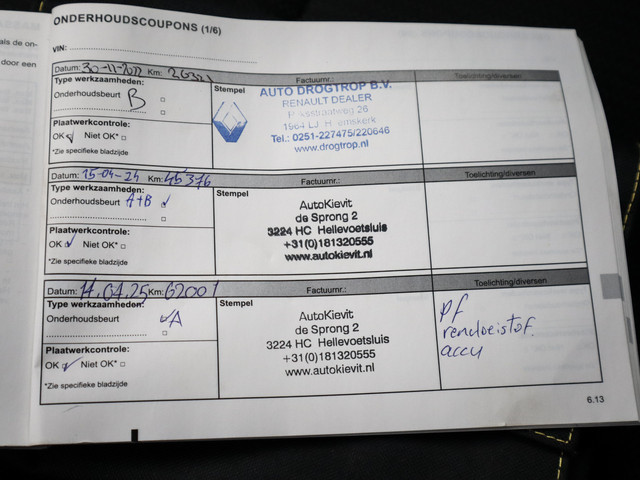 ONDERHOUDSCOUPONS (1/6)
als de on-
door een
VIN:
Datum: 30-11-2022 Km: 26321 Factuurnr.: Toelichting/diversen
Type werkzaamheden:
Onderhoudsbeurt B
Plaatwerkcontrole:
OK Niet OK*
*Zie specifieke bladzijde
Stempel
AUTO DROGTROP B.V.
RENAULT DEALER
26
Tel.: 0251-227475/220646
www.drogtrop.nl
Datum: 15-04-24 Km: 45376 Factuurnr.: Toelichting/diversen
Type werkzaamheden:
Onderhoudsbeurt A+B
Plaatwerkcontrole:
OK Niet OK*
*Zie specifieke bladzijde
Stempel
AutoKievit
de Sprong 2
3224 HC Hellevoetsluis
+31(0)181320555
www.autokievit.nl
Datum: 14.04.25 Km: 62001 Factuurnr.: Toelichting/diversen
Type werkzaamheden:
Onderhoudsbeurt A
Plaatwerkcontrole:
OK Niet OK*
*Zie specifieke bladzijde
Stempel
AutoKievit
de Sprong 2
3224 HC Hellevoetsluis
+31(0)181320555
www.autokievit.nl
pf
remvloeistof.
accu
6.13